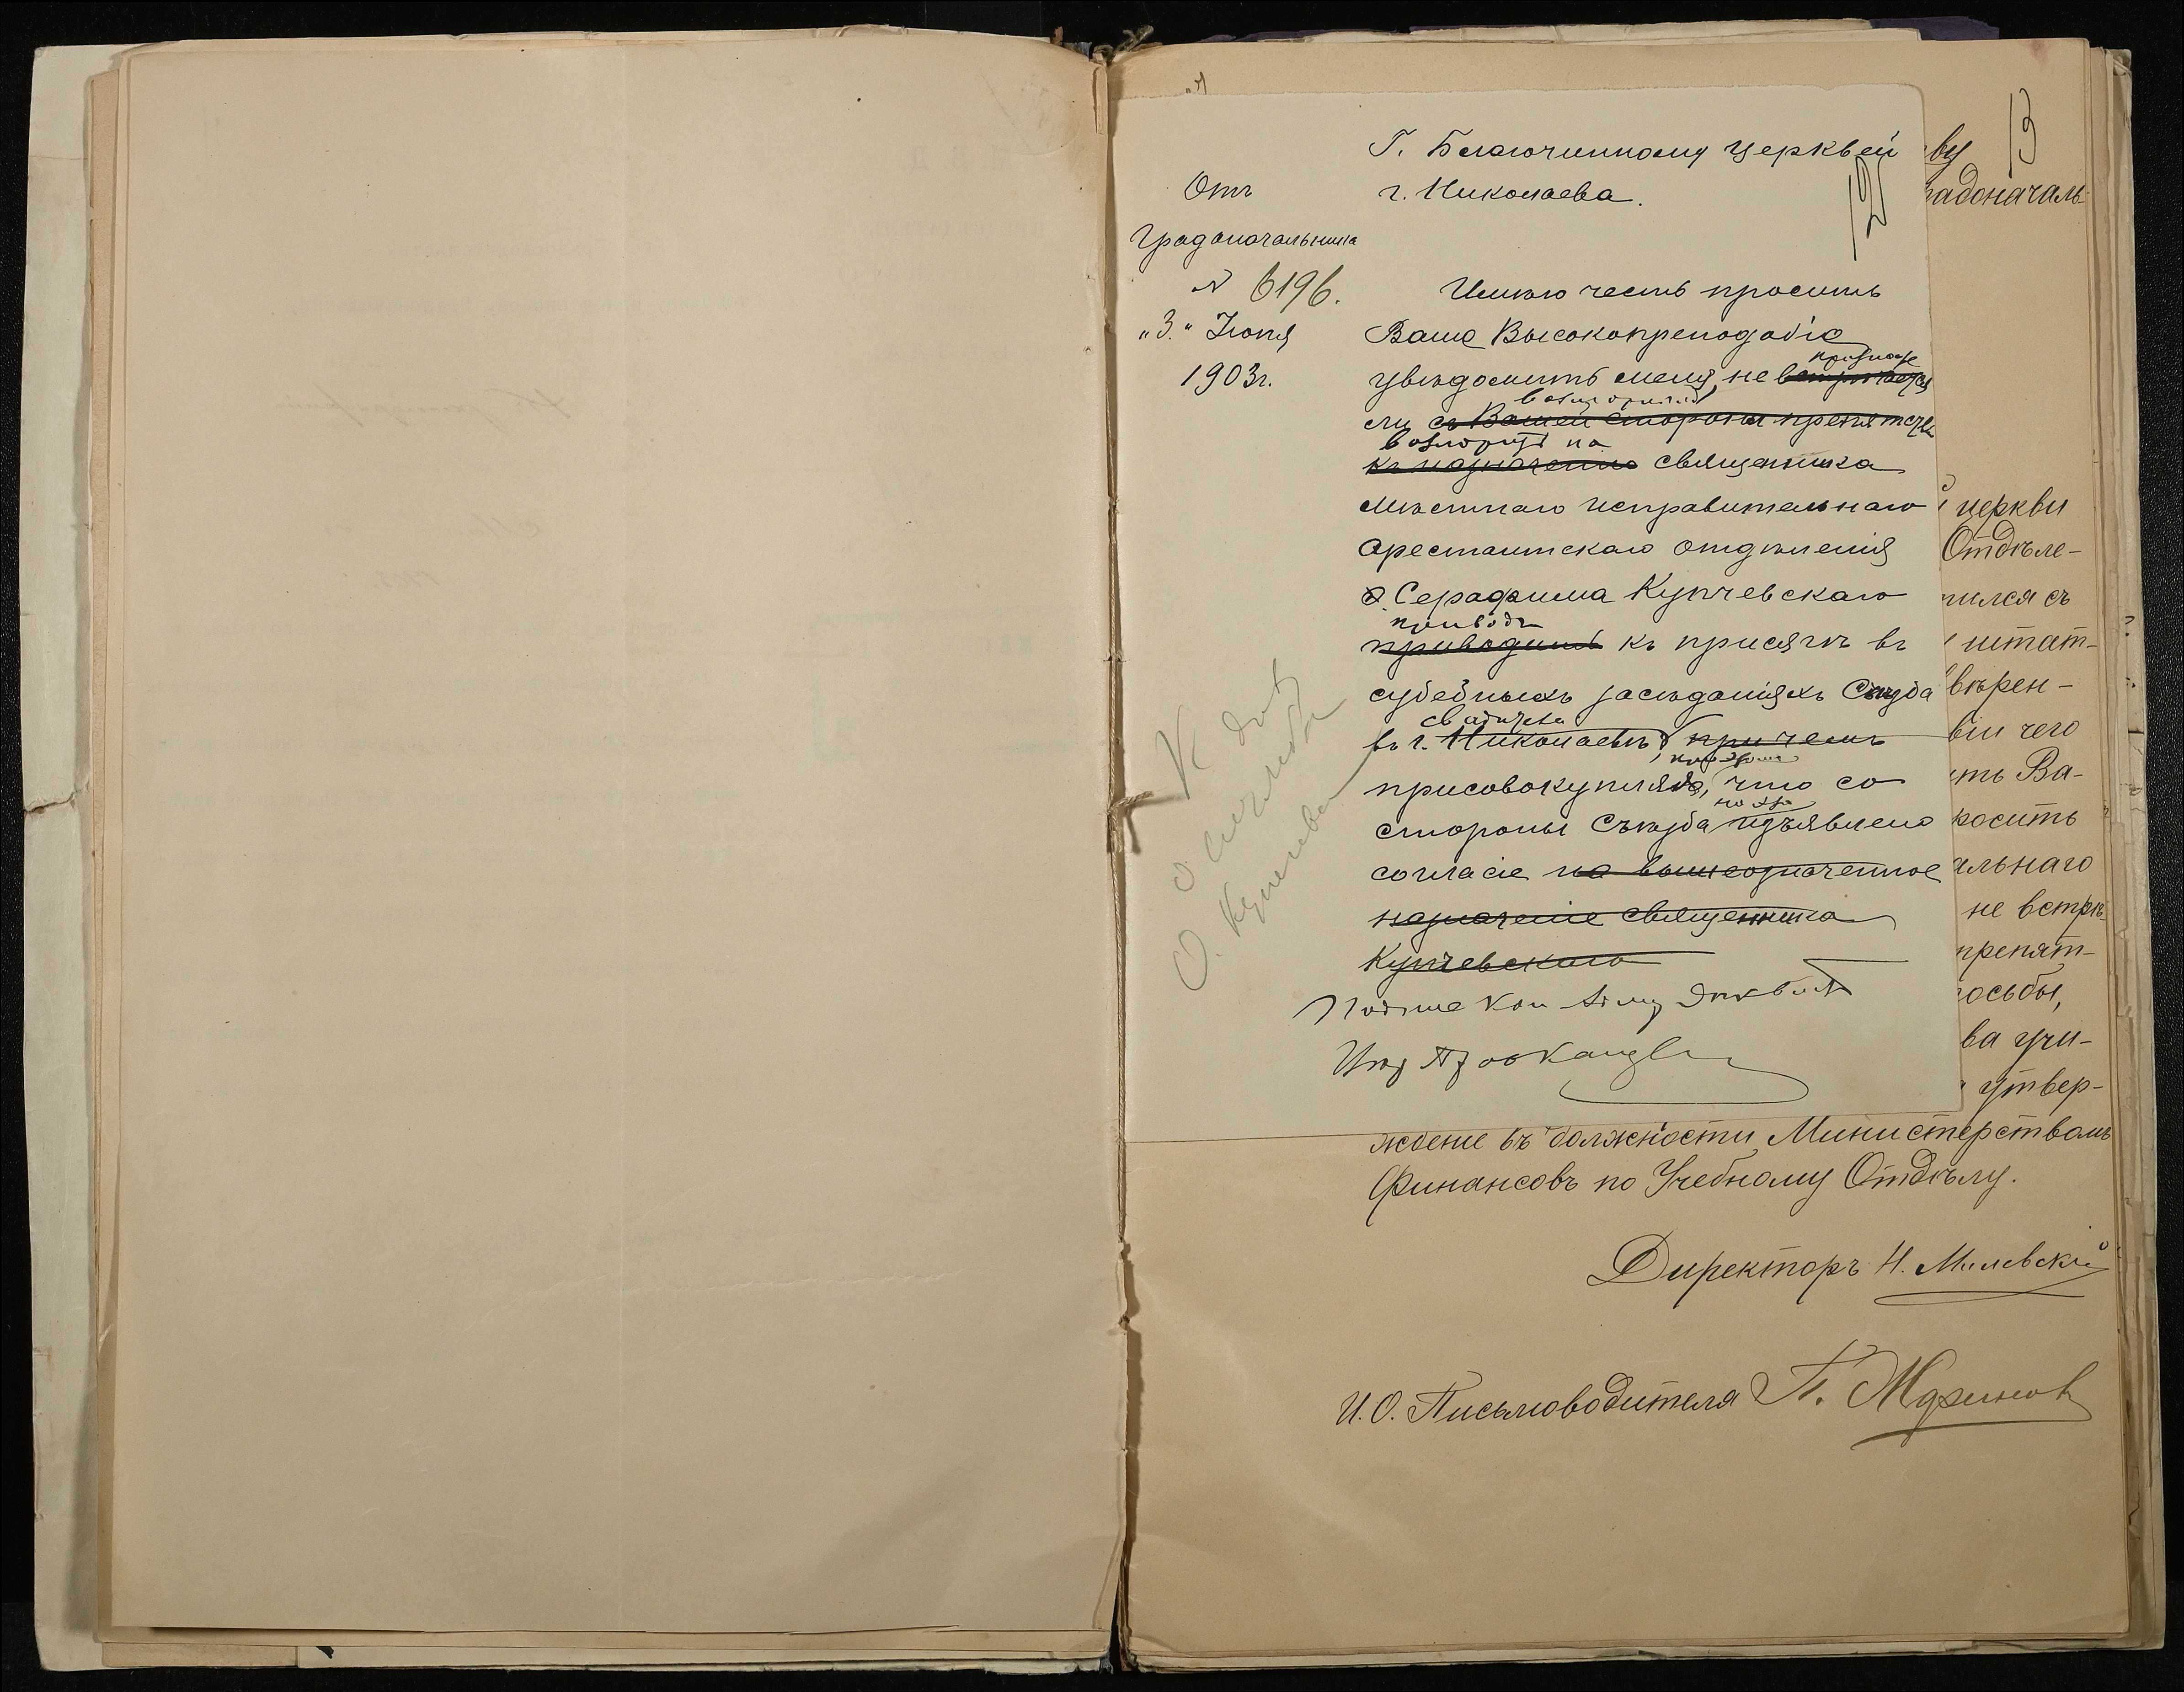 13
12
Г. Благочинному церквей
г. Николаева.
Отъ
Градоначальника
№ 6196.
"3." Іюня
1903г.
Имѣю честь просить
Ваше Высокопреподобіе
увѣдомить меня, не встрѣчается
ли съ Вашей стороны препятствія
возложить на
къ назначенію священника
мѣстнаго исправительнаго
арестантскаго отдѣленія
о. Серафима Купчевскаго
приводъ
приводить къ присягѣ въ
судебныхъ засѣданіяхъ Съѣзда
въ г. Николаевѣ, при чемъ
присовокупляю, что со
стороны Съѣзда изъявлено
согласіе на вышеозначенное
назначеніе священника
Купчевскаго
К
О.
ву
радоначаль-
церкви
Отдѣле-
лился съ
штат-
ввѣрен-
віи чего
ить Ва-
росить
ельнаго
не встрѣ-
препят-
росьбы,
ва учи-
утвер-
жденіе въ должности Министерствомъ
Финансовъ по Учебному Отдѣлу.
Директоръ Н. Милевскій
И.О. Письмоводителя П.